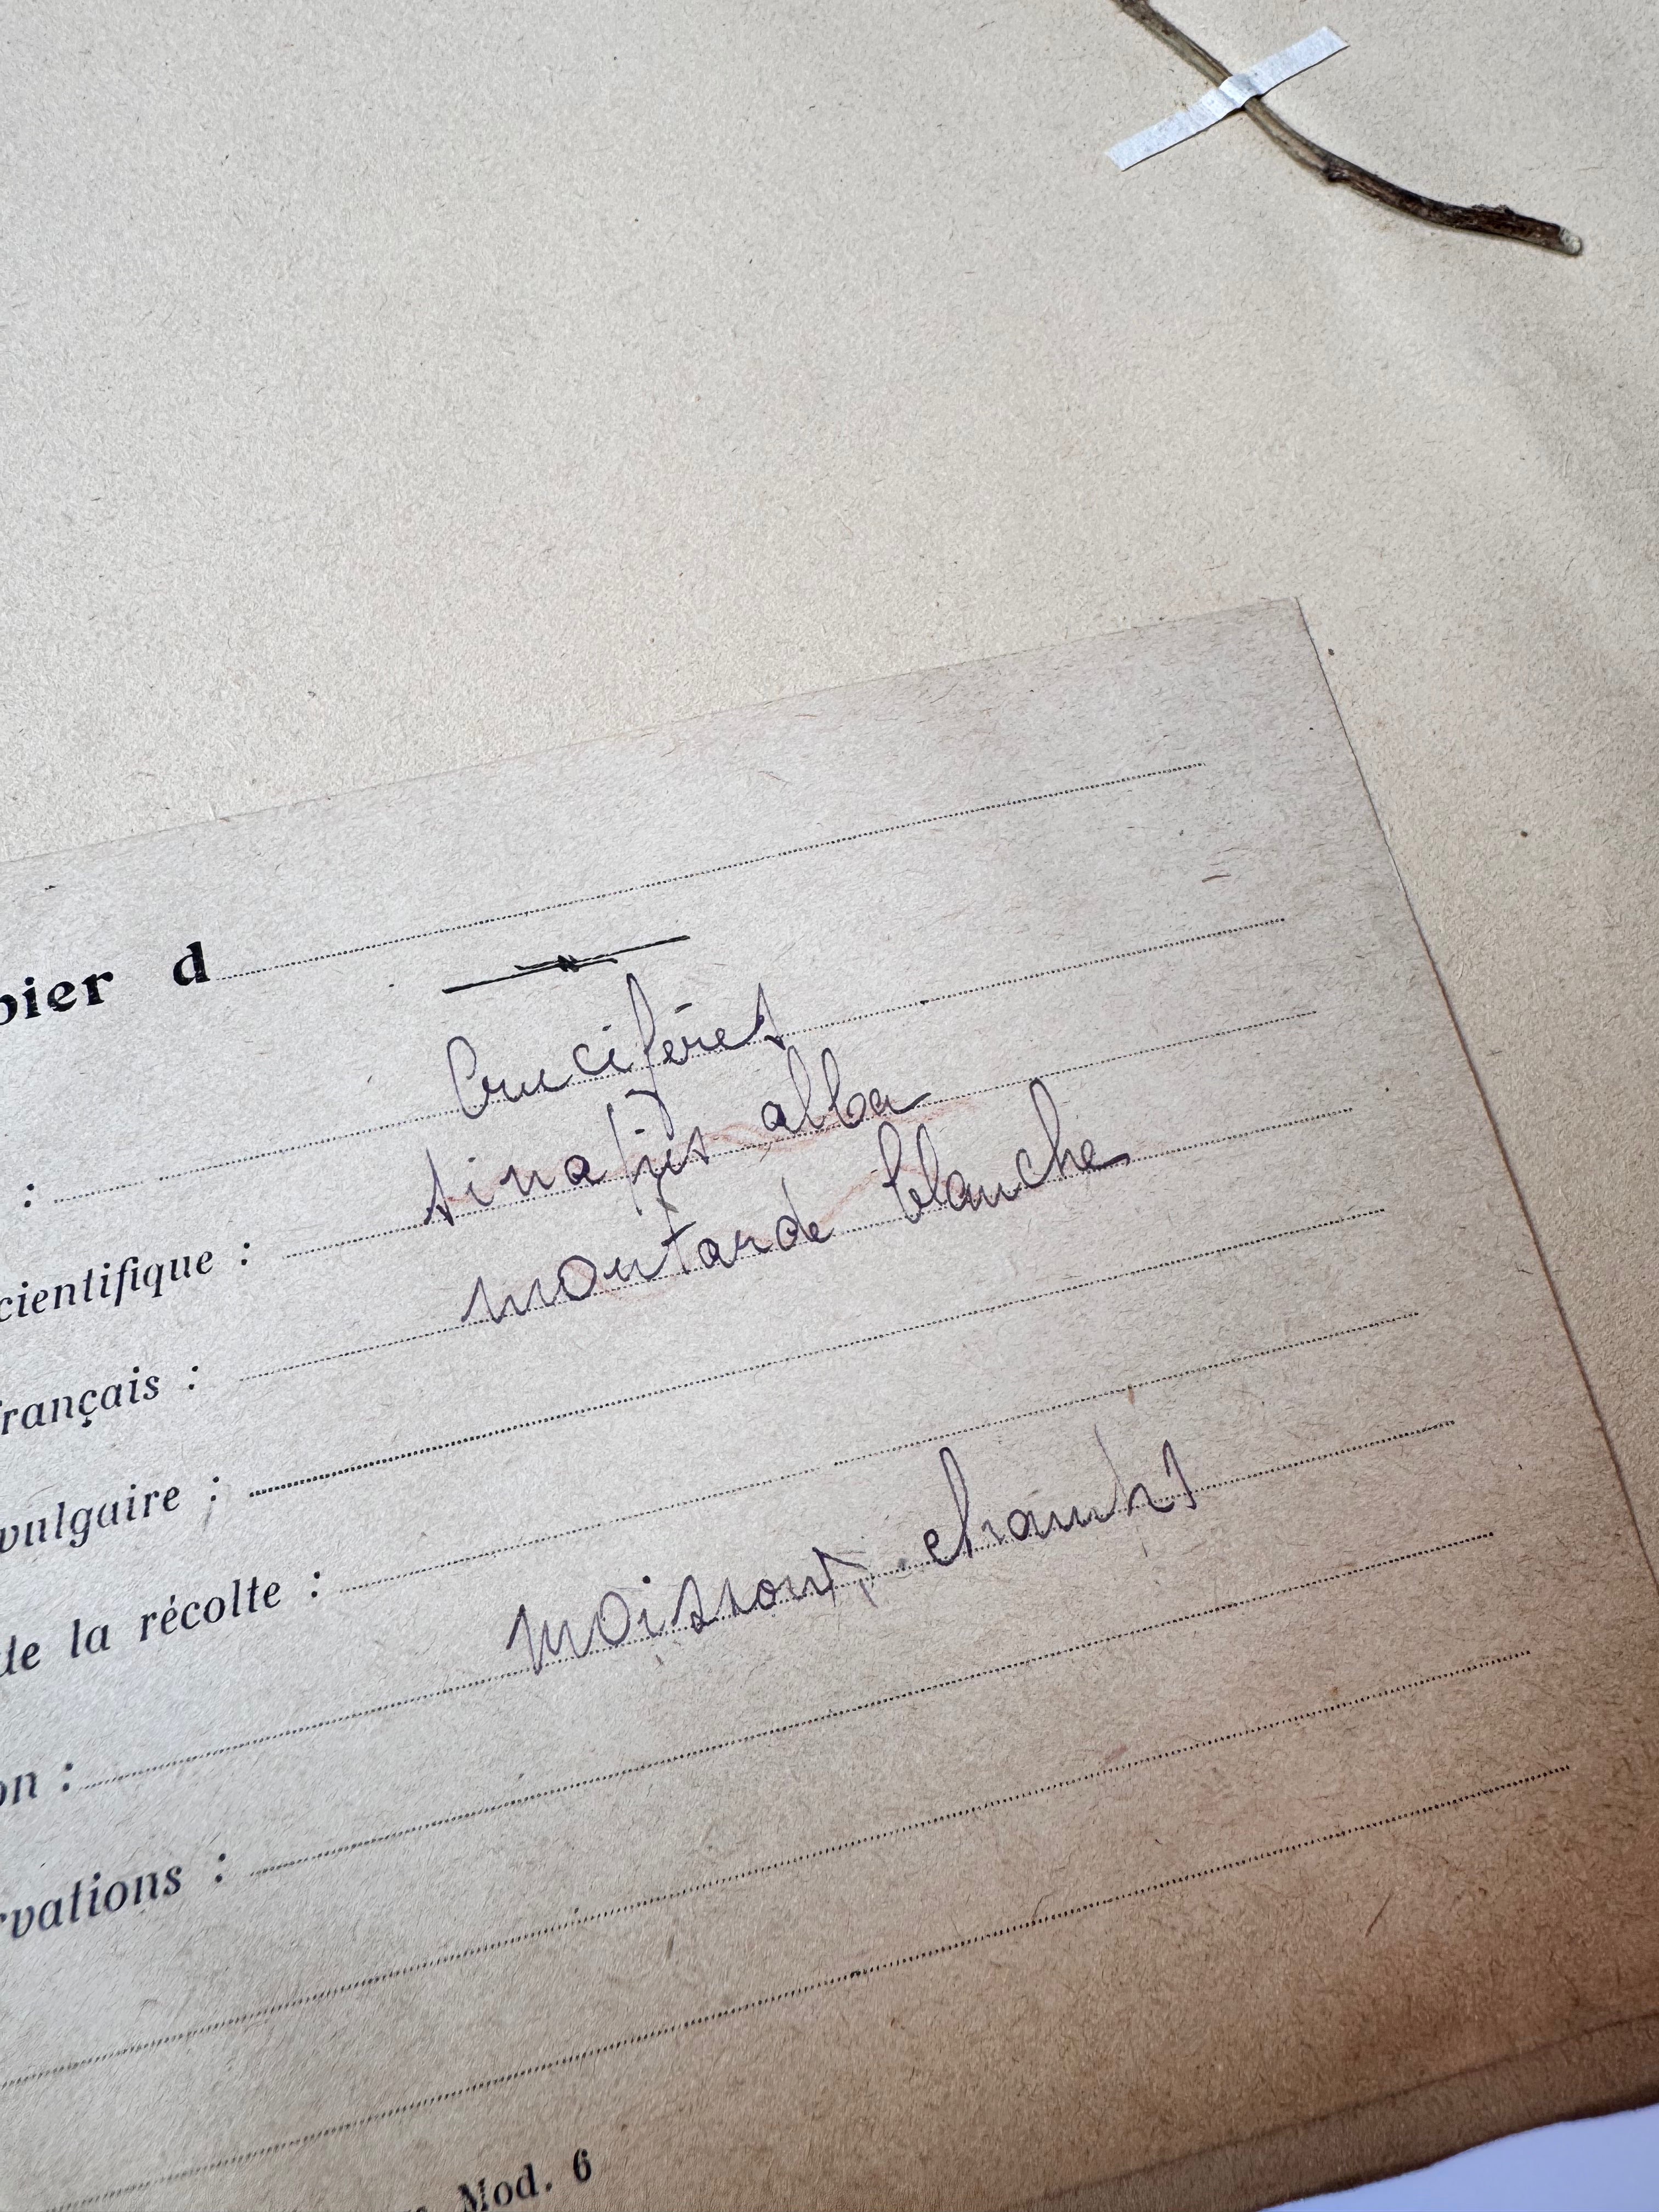 bier d
Crucifères
: sinapis alba
cientifique : moutarde blanche
rançais :
vulgaire :
de la récolte : moissons, champs
on :
rvations :
Mod. 6